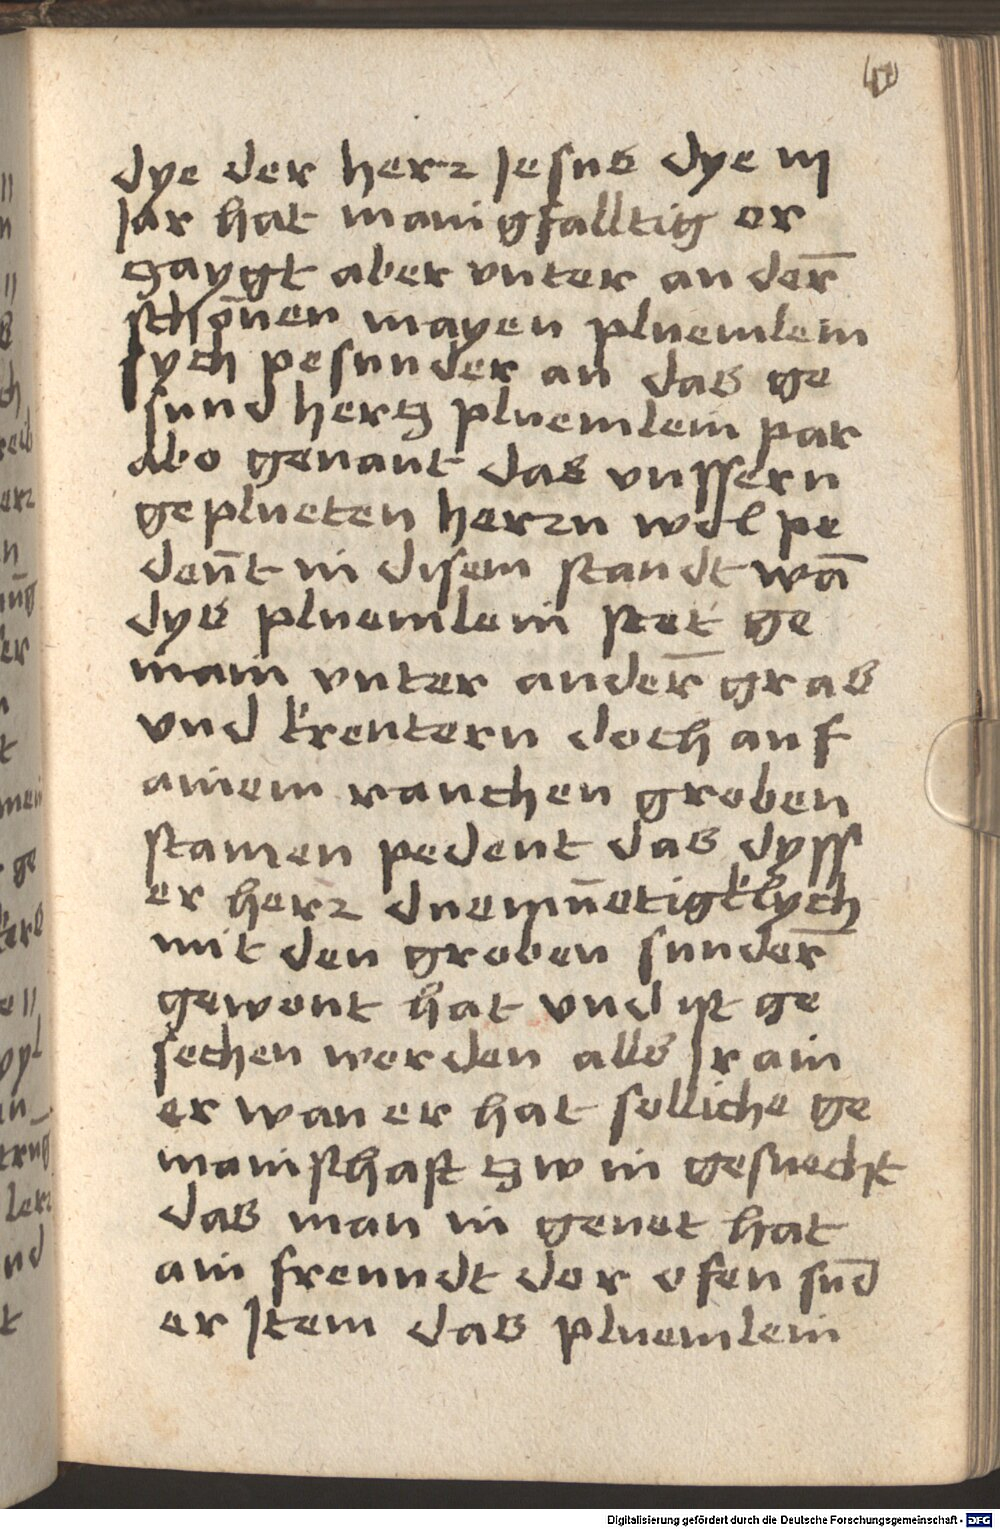 40
dye der herr Jesus dye iij
Jar hat manigfalltig er
zaygt aber vnter ander̄
schōnen mayen pluemlein
sych pesunder an das ge
sund hertz pluemlein par
abo genant das vnssern
geplueten herrn wol pe
den̄t in disem standt wā
dys pluemlein stet ge
main vnter ander̄ gras
vnd krentern doch auf
ainem rauchen groben
stamen pedent das dyss
er herr duemūetigklych
mit den groben sunder̄
gewont hat vnd ist ge
sechen werden alls Jr ain
er wan er hat solliche ge
mainschaft zw in gesuecht
das man in genet hat
ain freundt der ofen sūd
er Item das pluemlein
Digitalisierung gefördert durch die Deutsche Forschungsgemeinschaft - DFG